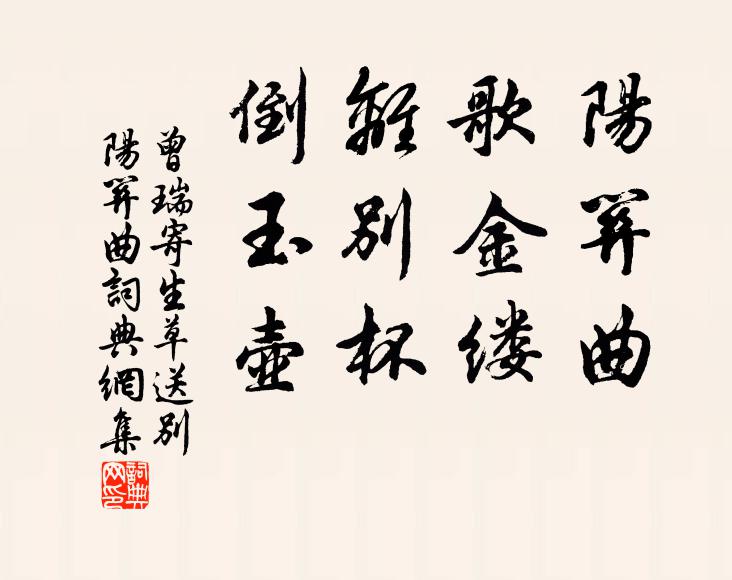 陽關曲
歌金缕
離別杯
倒玉壺
曾瑞寄生草送別
陽關曲詞典網集
詞典
网印